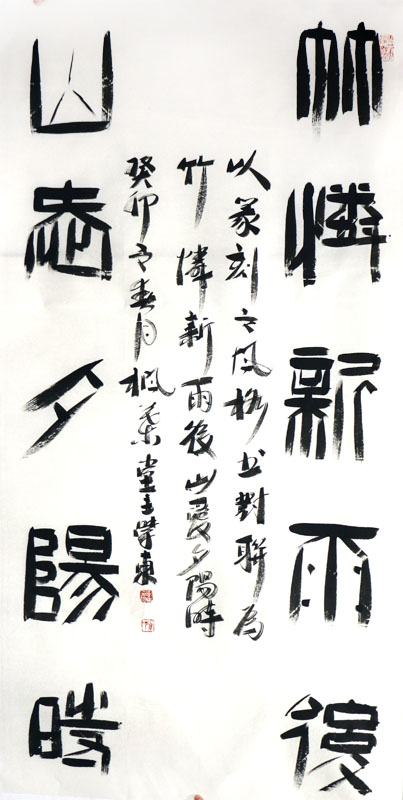 竹憐新雨後
山愛夕陽時
以篆刻之風格书對聯為
竹憐新雨後山愛夕陽時
癸卯之春月楓葉堂主東